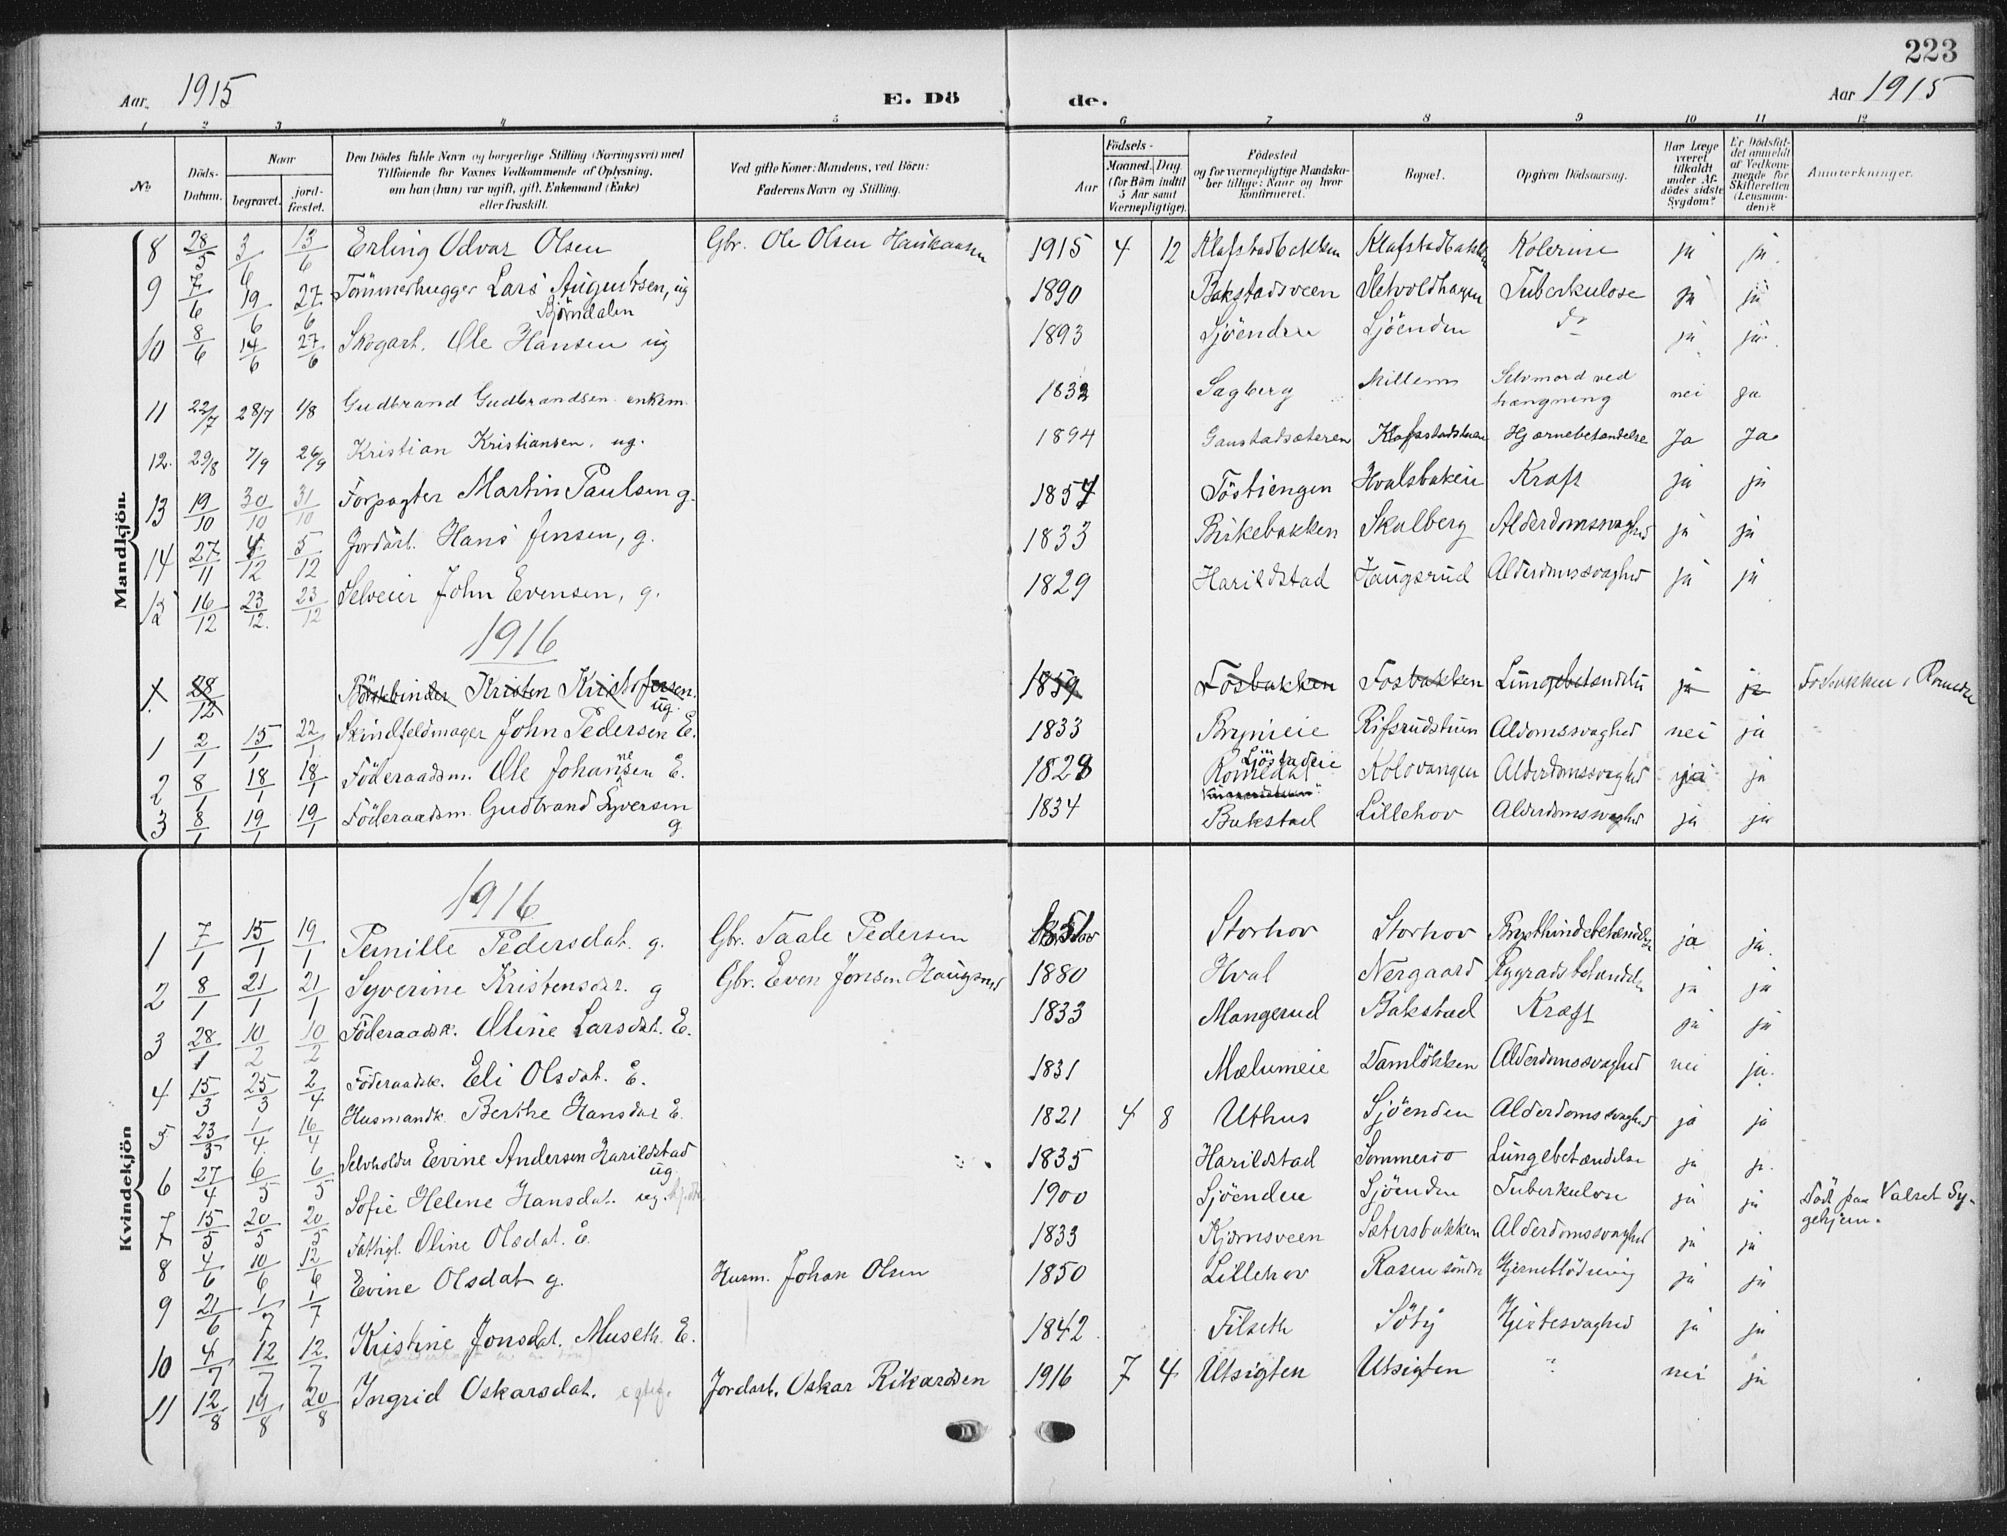 223
Aar 1915 E. Dö de. Aar 1915
1 2 3 4 5 6 7 8 9 10 11 12
No
Döds-
Datum.
Naar
begravet.
jord-
fæstet.
Den Dödes fulde Navn og borgerlige Stilling (Næringsvei) med
Tilföiende for Voxnes Vedkommende af Oplysning,
om han (hun) var ugift, gift, Enkemand (Enke)
eller fraskilt.
Ved gifte Koner: Mandens, ved Börn:
Faderens Navn og Stilling.
Födsels-
Aar Maaned. Dag.
(for Börn indtil
5 Aar samt
Værnepligtige).
Födested
og for værnepligtige Mandska-
ber tillige: Naar og hvor
konfirmeret.
Bopæl.
Opgiven Dödsaarsag.
Har Læge
været
tilkaldt
under Af-
dödes sidste
Sygdom?
Er Dödsfal-
det anmeldt
af Vedkom-
mende for
Skifteretten
(Lensman-
den)?
Anmærkninger.
Mandkjön.
8 28/5 3/6 13/6 Erling Odvar Olsen Gbr. Ole Olsen 1915 4 12 Klafstadbakken Klafstadbakken Kolerine ja ja.
9 7/6 19/6 27/6 Tömmerhugger Lars Augustsen, ug 1890 Bakstadsveen Sletvoldhagen Tuberkulose ja ja
Björndalen
10 8/6 14/6 27/6 Skogarb. Ole Hansen ug 1893 Sjöenden Sjöenden do ja ja.
11 22/7 28/7 1/8 Gudbrand Gudbrandsen enkem. 1832 Sagberg Millem Selvmord ved
hængning nei ja
12. 29/8 7/9 26/9 Kristian Kristiansen, ug. 1894 Ganstadsæteren Hjernebetændelse Ja Ja
13 19/10 30/10 31/10 Forpagter Martin Paulsen g. 1857 Töstiengen Hvalsbakken Kræft ja ja
14 27/11 4/12 5/12 Jordarb. Hans Jensen, g. 1833 Birkebakken Skulberg Alderdomssvaghed ja ja
15 16/12 23/12. 23/12 Selveier John Evensen, g. 1829 Harildstad Haugsrud Alderdomssvaghed ja ja
1916
1. 28/12 Börstebinder Kristen Kristofersen.
ug. 1859 Fosbakken Fosbakken Lungebetændelse ja ja Fosbakken i Romedal
1 2/1 15/1 22/1 Skindfeldmager John Pedersen E. 1833 Brynieie Rifsrudstuen Aldomssvaghed nei ja
2 8/1 18/1 18/1 Föderaadsm. Ole Johannesen E. 1828 Romedal Kolovangen Alderdomssvaghed ja
3 8/1 19/1 19/1 Föderaadsm. Gudbrand Syversen
g 1834 Bakstad Lillehov Alderdomssvaghed ja ja
Kvindekjön
1916
1 7/1 15/1 19/1 Pernille Pedersdat. g. Gbr. Taale Pedersen 1851 Storhov Storhov Brysthindebetændelse ja ja.
2 8/1 21/1 21/1 Syverine Kristensdtr. g Gbr. Even Jonsen Haugsrud 1880 Hval Nergaard Rygradsbetændelse ja ja
3 28/1 10/2 10/2 Föderaadsk. Oline Larsdat. E. 1833 Mangerud Bakstad Kræft ja ja
4 15/3 25/3 2/4 Föderaadsk. Eli Olsdat. E. 1831 Mælumeie Damlökken Alderdomssvaghed nei ja.
5 23/3 1/4. 16/4 Husmandk. Berthe Hansdat E. 1821 4 8 Uthus Sjöenden Alderdomssvaghed ja ja
6 27/4 6/5 6/5 Selvholder Evine Andersen Harildstad
ug. 1835 Harildstad Sommerro Lungebetændelse ja ja.
7 15/5 20/5 20/5 Sofie Helene Hansdat. ug. 1900 Sjöenden Sjöenden Tuberkulose ja ja Död paa Valset Sy-
gehjem.
8 4/6 10/6 12/6 Fattigl. Oline Olsdat. E. 1833 Kjernsveen Sætersbakken Alderdomssvaghed ja ja
9 21/6 1/7 1/7 Evine Olsdat g. Husm. Johan Olsen 1850 Lillehov Rasen söndre Hjerneblödning ja ja
10 4/7 12/7 12/7 Kristine Jonsdat. Museth. E. 1842 Filseth Söby Hjertesvaghed ja ja
11 12/8 19/8 20/8 Ingrid Oskarsdat. egtef. Jordarb. Oskar Rikardsen 1916 7 4 Utsigten Utsigten nei ja